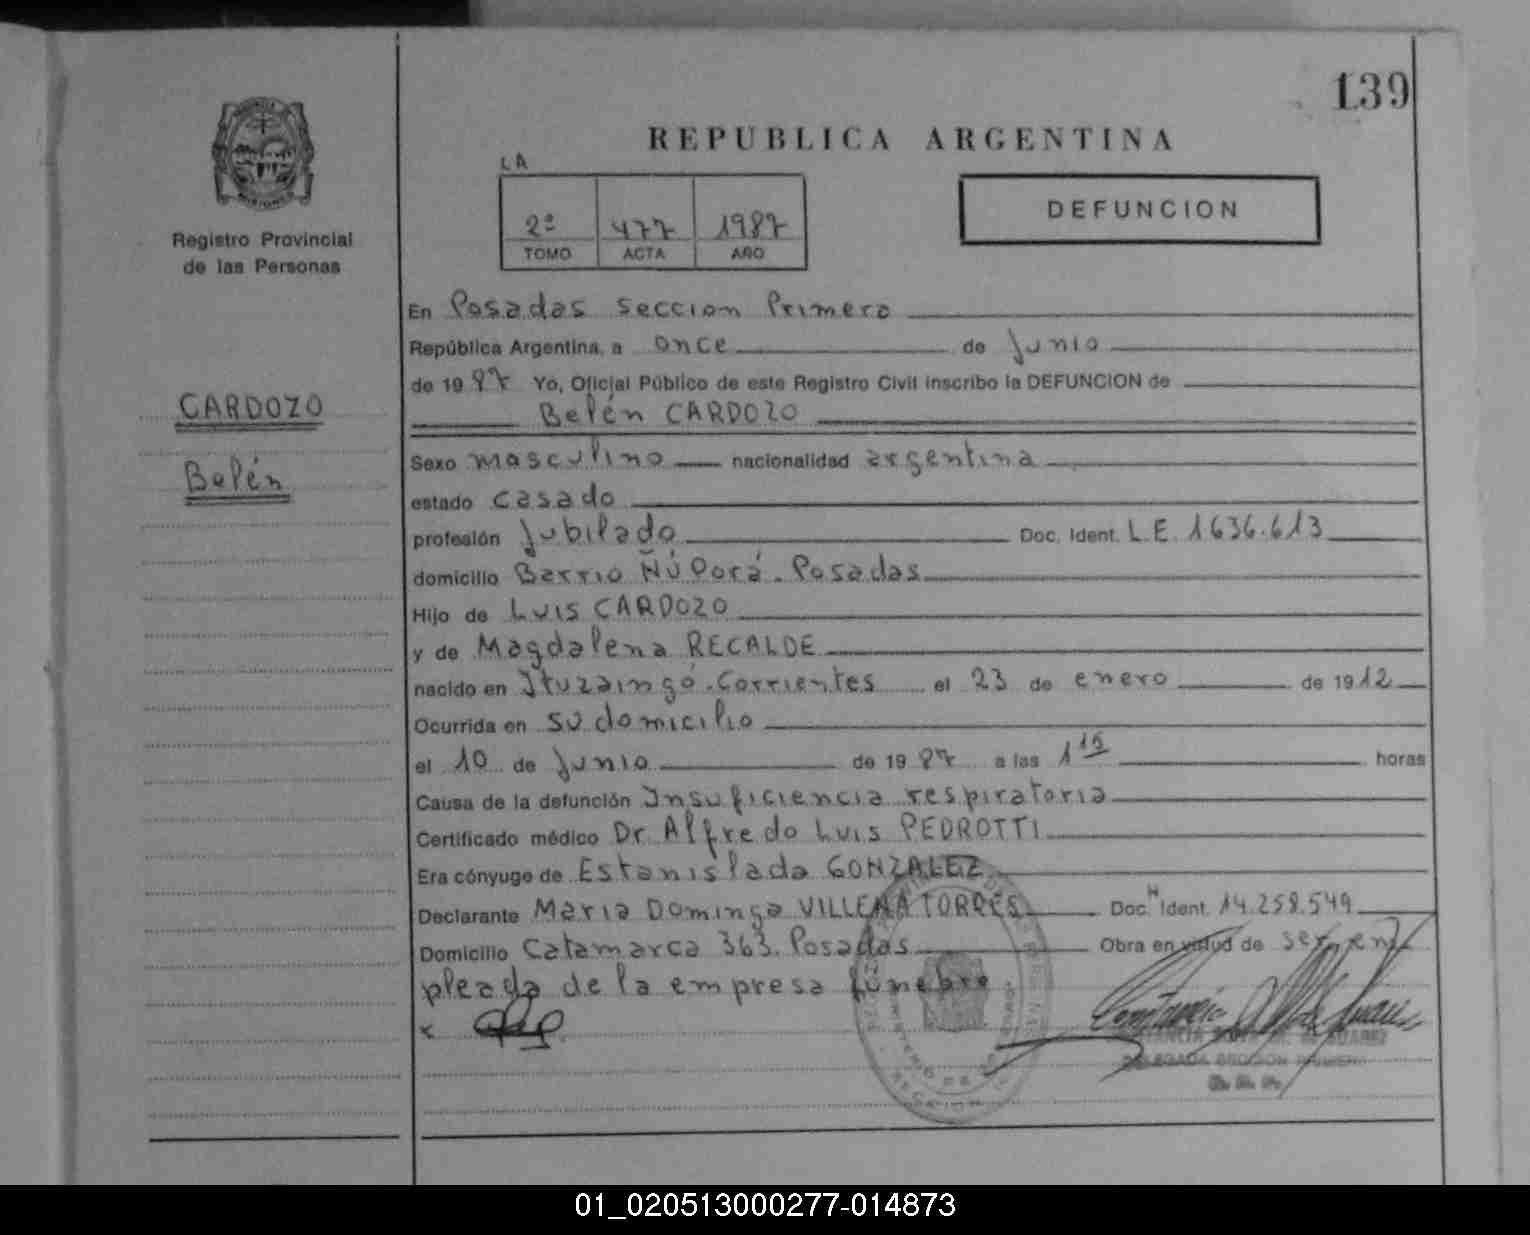 139
REPUBLICA ARGENTINA
LA
2º 477 1987
TOMO ACTA AÑO
DEFUNCION
Registro Provincial
de las Personas
CARDOZO
Belén
En Posadas seccion Primera
República Argentina, a once de Junio
de 1987 Yo, Oficial Público de este Registro Civil inscribo la DEFUNCION de
Belén CARDOZO
Sexo masculino nacionalidad argentina
estado casado
profesión Jubilado Doc. Ident. L.E. 1636.613
domicilio Barrio Ñú Porá. Posadas
Hijo de Luis CARDOZO
y de Magdalena RECALDE
nacido en Ituzaingó. Corrientes el 23 de enero de 1912
Ocurrida en su domicilio
el 10 de Junio de 1987 a las 1 15 horas
Causa de la defunción Insuficiencia respiratoria
Certificado médico Dr. Alfredo Luis PEDROTTI
Era cónyuge de Estanislada GONZALEZ
Declarante Maria Dominga VILLENA TORRES Doc. Ident. 14.258.549
Domicilio Catamarca 363. Posadas Obra en virtud de ser em
pleada de la empresa fúnebre
x
DELEGADA SECCION PRIMERA
01_020513000277-014873